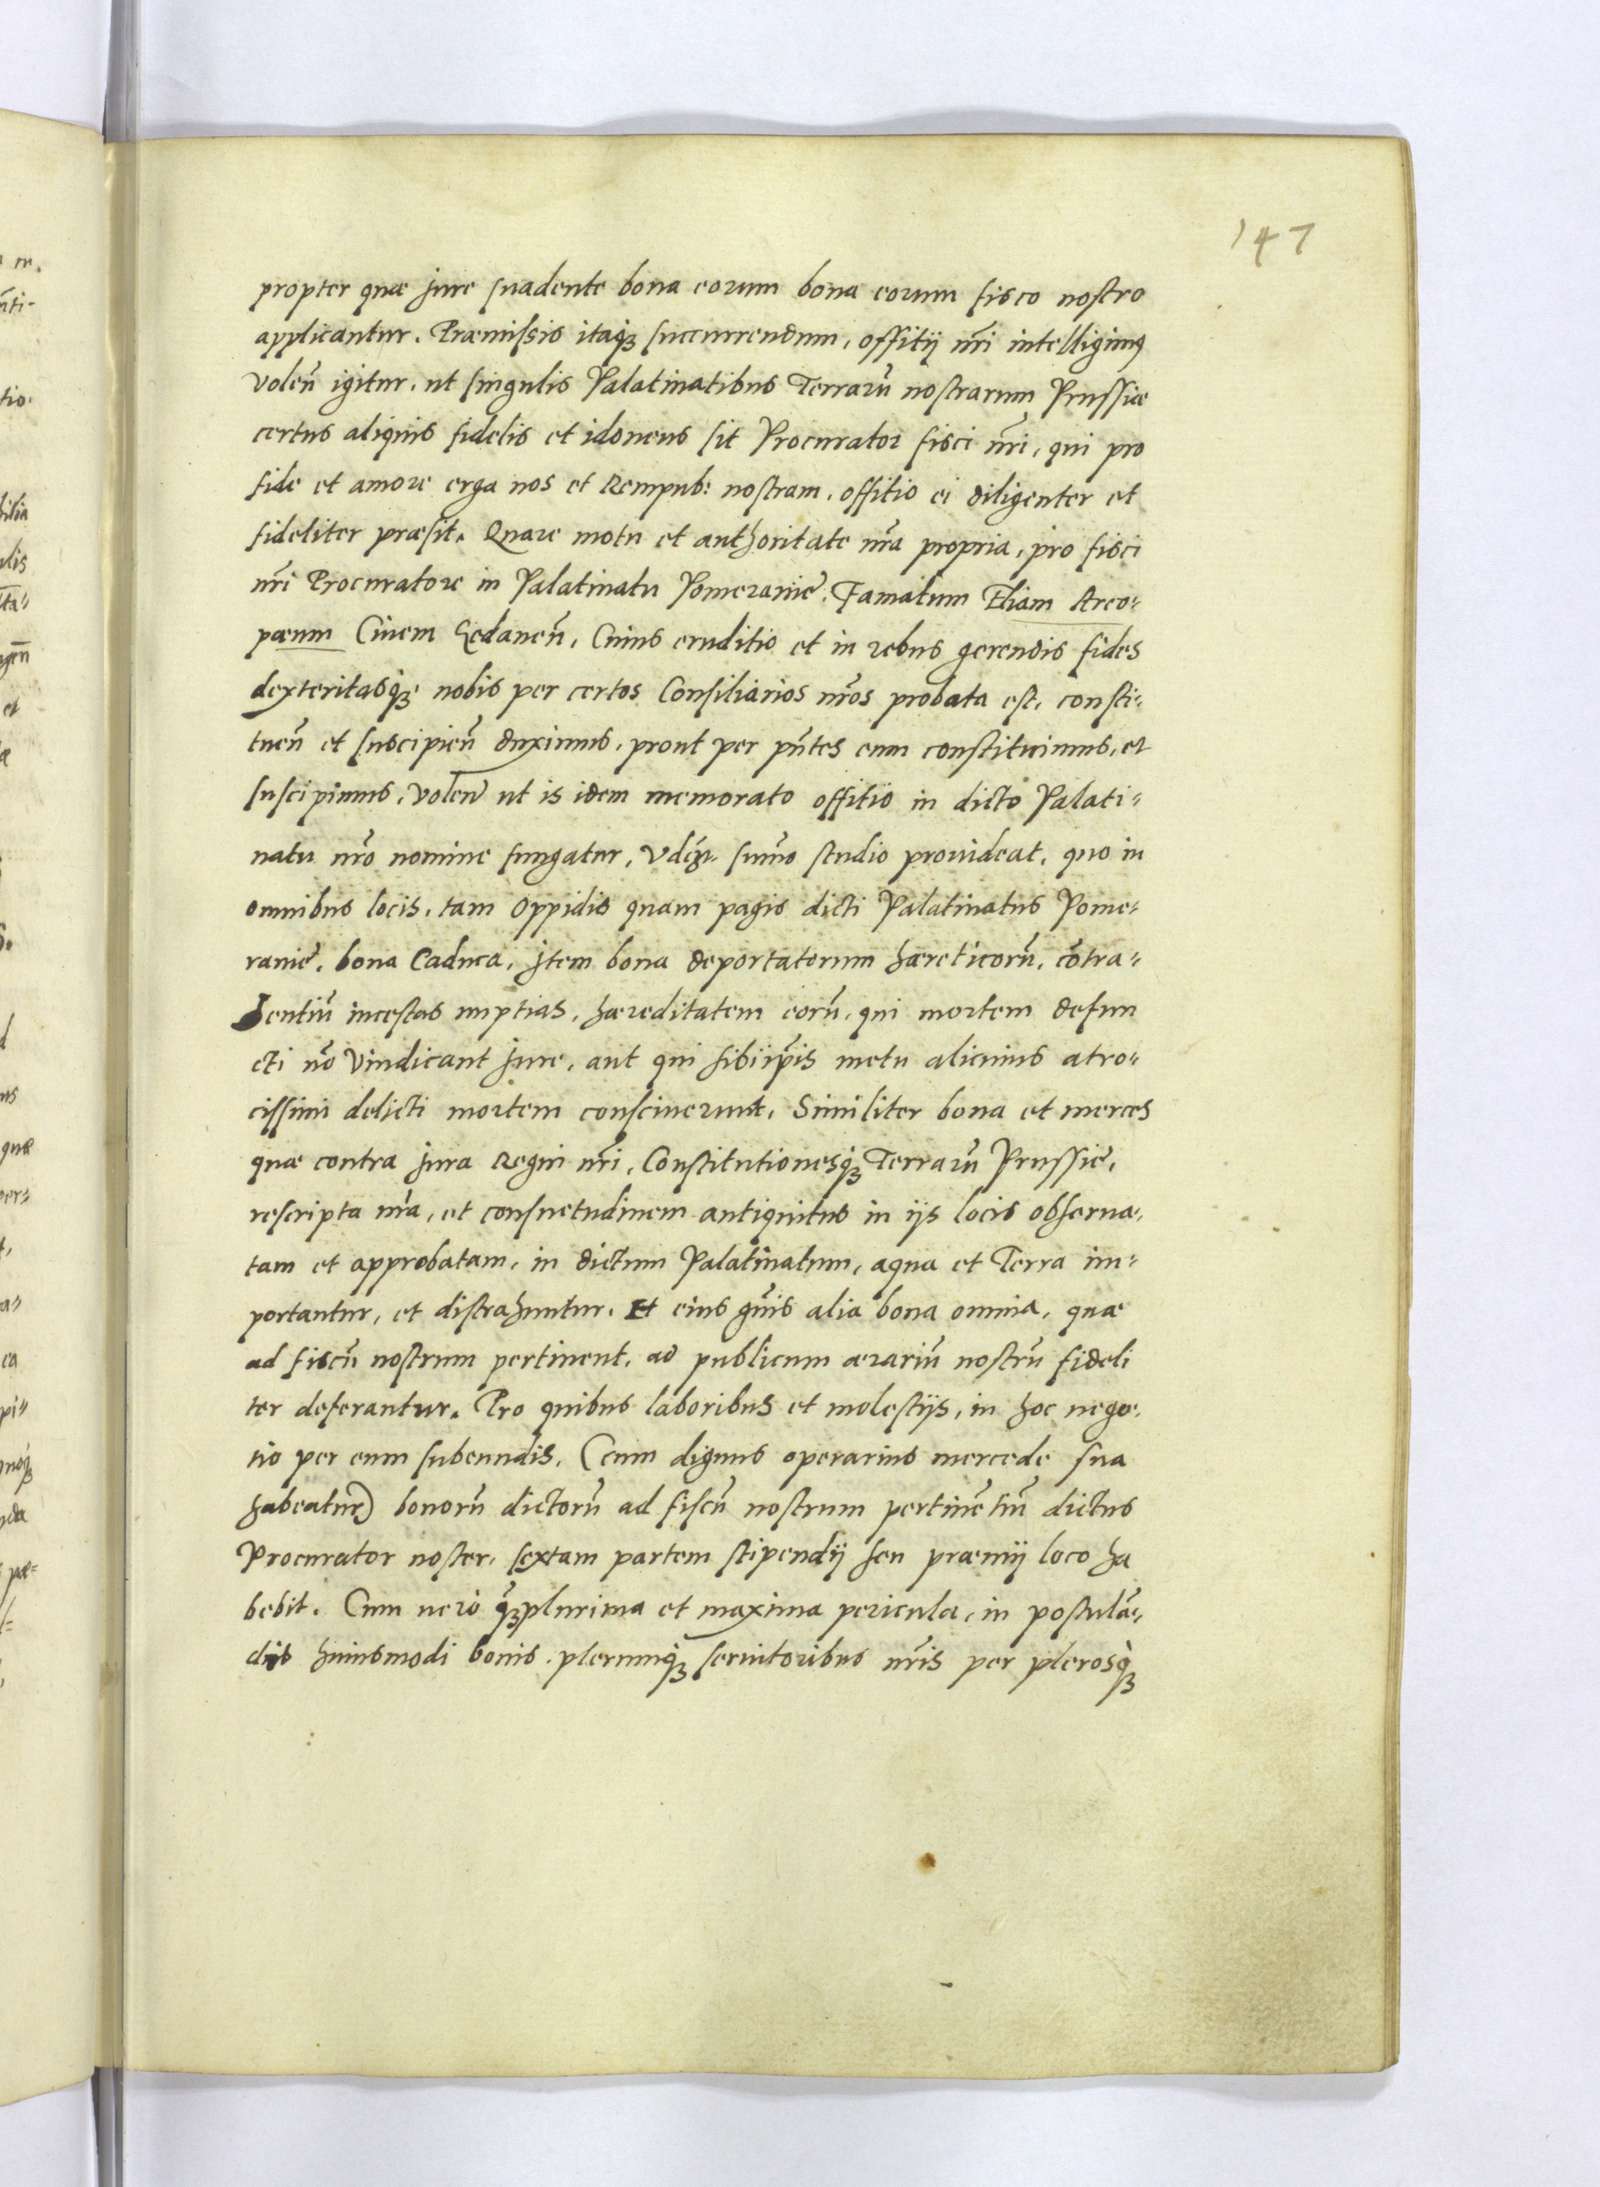 147
propter quæ jure suadente bona eorum bona eorum fisco nostro
applicantur. Præmissis itaq3 succurrendum, offitij nr̃i intelligimus
volen̄ igitur, ut singulis Palatinatibus Terrarū nostrarum Prussiæ
certus aliquis fidelis et idoneus sit Procurator fisci nr̃i, qui pro
fide et amore erga nos et Rempub: nostram, offitio ei diligenter et
fideliter præsit. Quare motu et authoritate nr̃a propria, pro fisci
nr̃i Procuratore in Palatinatu Pomeraniẹ, Famatum Eliam Arco-
pæum Ciuem Gedanen̄, Cuius eruditio et in rebus gerendis fides
dexteritasq3 nobis per certos Consiliarios nr̃os probata est, consti-
tuen̄ et suscipien̄ duximus, prout per pn̄tes eum constituimus, et
suscipimus, volen̄ ut is idem memorato offitio in dicto Palati-
natu nr̃o nomine fungatur, sum̄o studio prouideat, quo in
omnibus locis, tam oppidis quam pagis dicti Palatinatus Pome-
raniẹ, bona Caduca, Jtem bona deportatorum hæreticorū, cōtra-
hentiū incestas nuptias, hæreditatem eorū, qui mortem defun
cti nō vindicant jure, aut qui sibiip̄is metu alicuius atro-
cissimi delicti mortem consciuerunt, Similiter bona et merces
quæ contra jura Regni nr̃i, Constitutionesq3 Terrarū Prussiẹ,
rescripta nr̃a, et consuetudinem antiquitus in ijs locis obserua-
tam et approbatam, in dictum Palatinatum, aqua et Terra im-
portantur, et distrahuntur. Et eius gn̄is alia bona omnia, quæ
ad fiscū nostrum pertinent, ad publicum ærariū nostrū fideli
ter deferantur. Pro quibus laboribus et molestijs, in hoc nego-
tio per eum subeundis, (cum dignus operarius mercede sua
habeatur) bonorū dictorū ad fiscū nostrum pertinētiū dictus
Procurator noster, sextam partem stipendij seu præmij loco ha
bebit. Cum uero q̄3plurima et maxima pericula, in postulā-
dis huiusmodi bonis, plerumq3 seruitoribus nr̃is per plerosq3